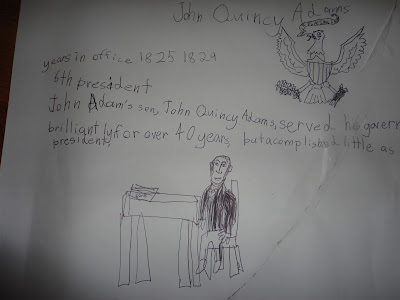 John Quincy Adams
years in office 1825 1829
6th president
John Adam's son, John Quincy Adams, served he govern
brilliantly for over 40 years, but acomplished little as
president.